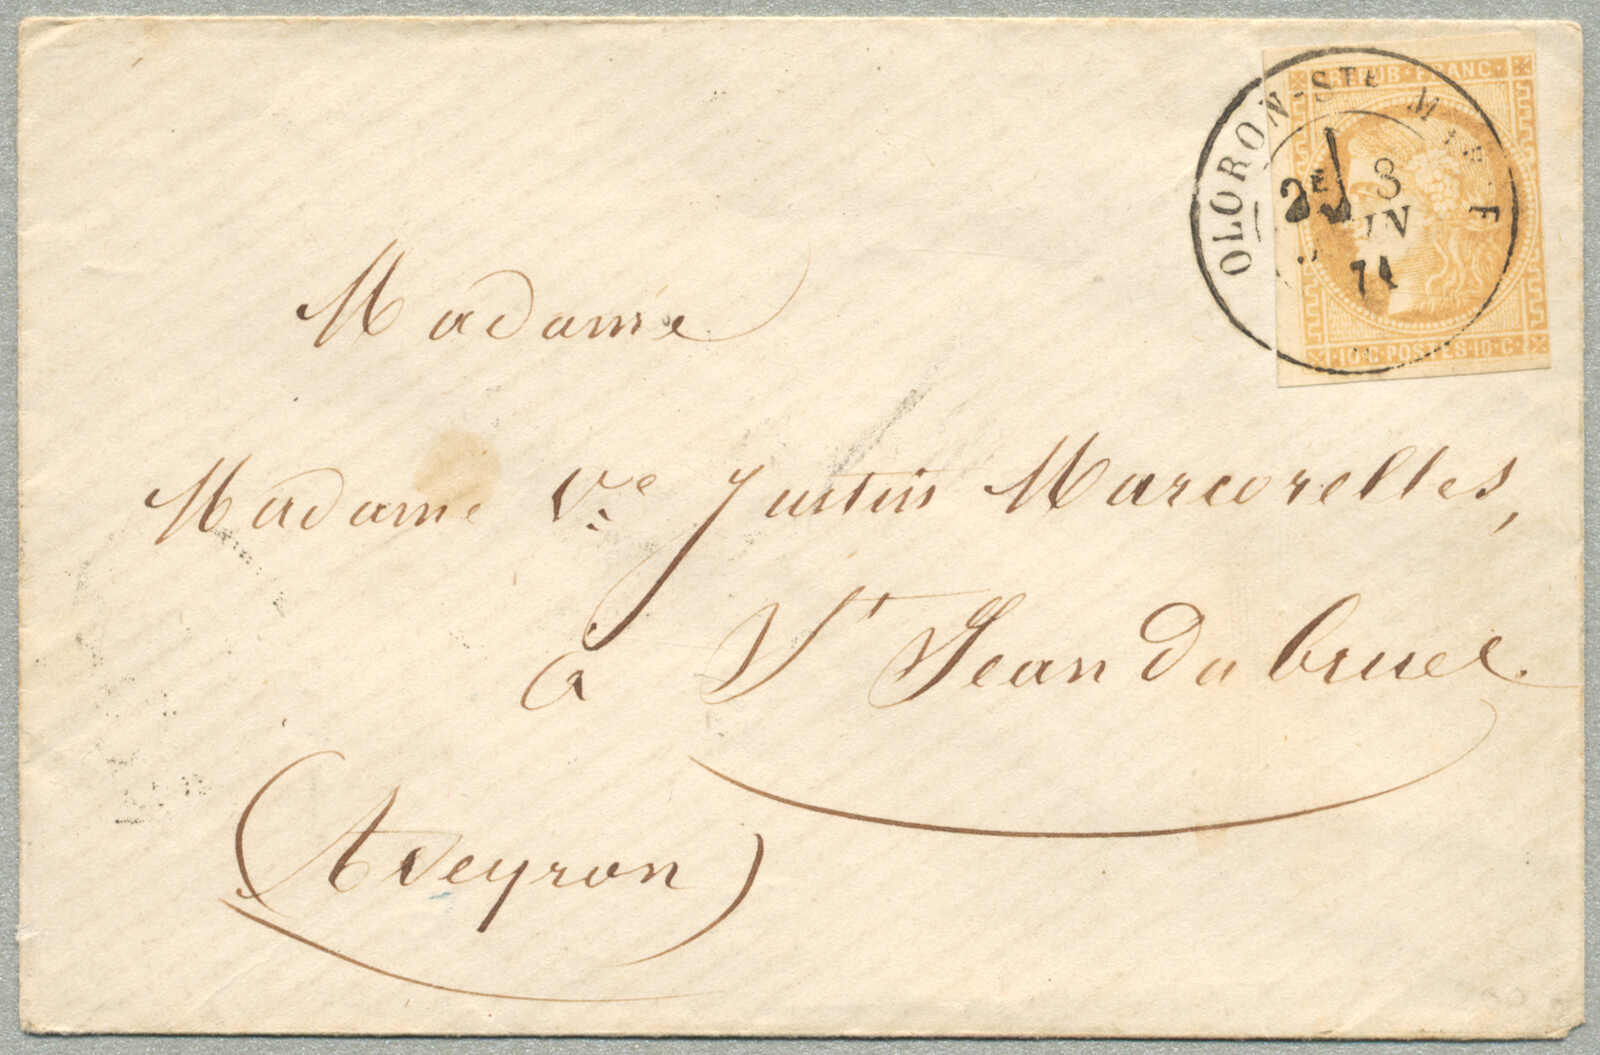 REPUB·FRANC
OLORON-STE MARIE
2E 8
JUIN
71
10·C·POSTES·10·C
Madame
Madame Ve Justin Marcorelles,
à St Jean du bruel.
(Aveyron)